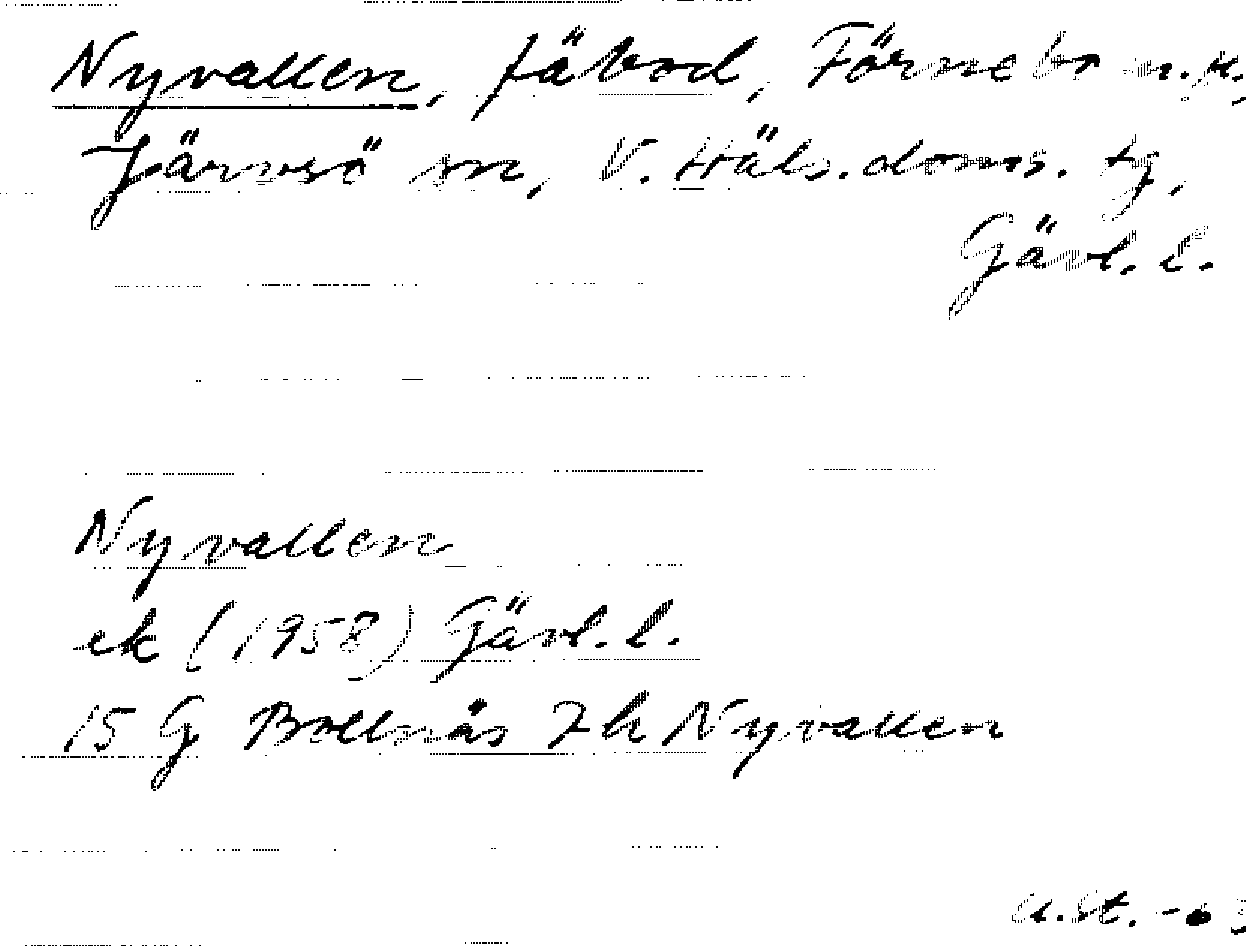 Nyvallen, fäbod, Förnebo n.m.,
Järvsö sn, V. Häls. doms. tg,
Gävl. l.
Nyvallen
ek (1958) Gävl. l.
15 G Bollnäs 7h Nyvallen
U.St. -63